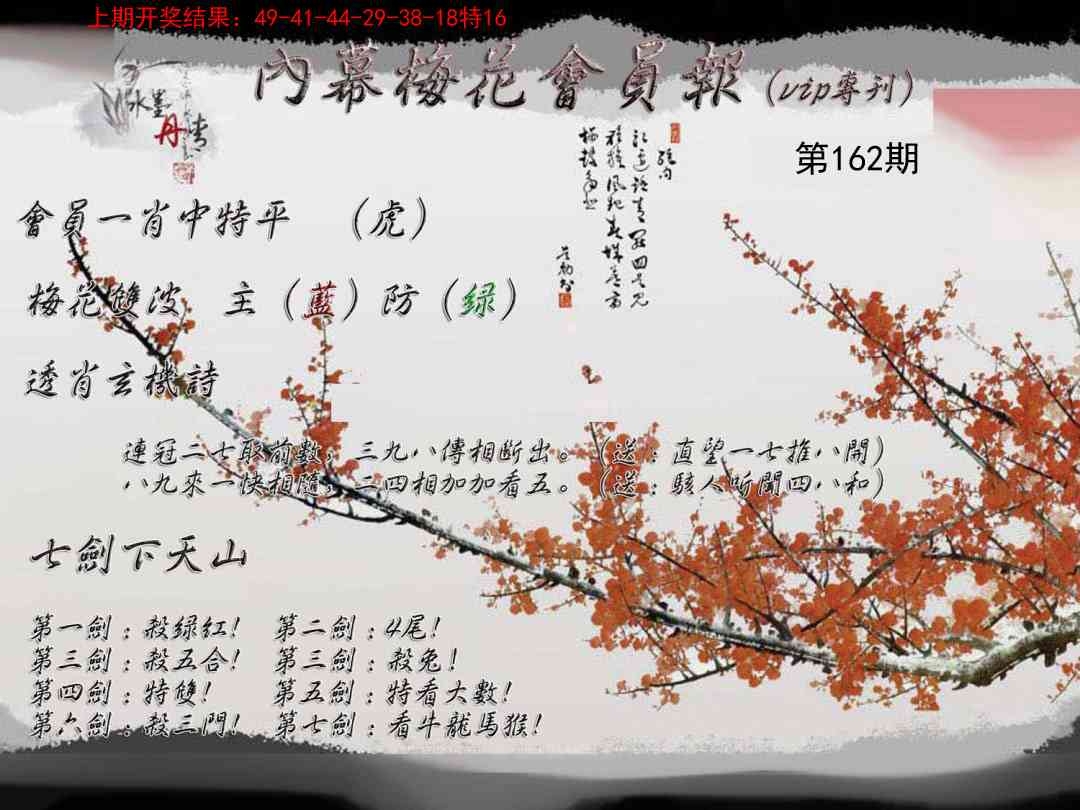 上期开奖结果：49-41-44-29-38-18特16
內幕梅花會員報(vip專刊)
水墨
丹青
第162期
會員一肖中特平 （虎）
梅花雙波 主（藍）防（绿）
透肖玄機詩
連冠二七取前數，三九八傳相斷出。（送：直望一七推八開）
八九來一快相隨，二四相加加看五。（送：駭人听聞四八和）
七劍下天山
第一劍：殺绿紅！ 第二劍：4尾！
第三劍：殺五合！ 第三劍：殺兔！
第四劍：特雙！ 第五劍：特看大數！
第六劍：殺三門！ 第七劍：看牛龍馬猴！